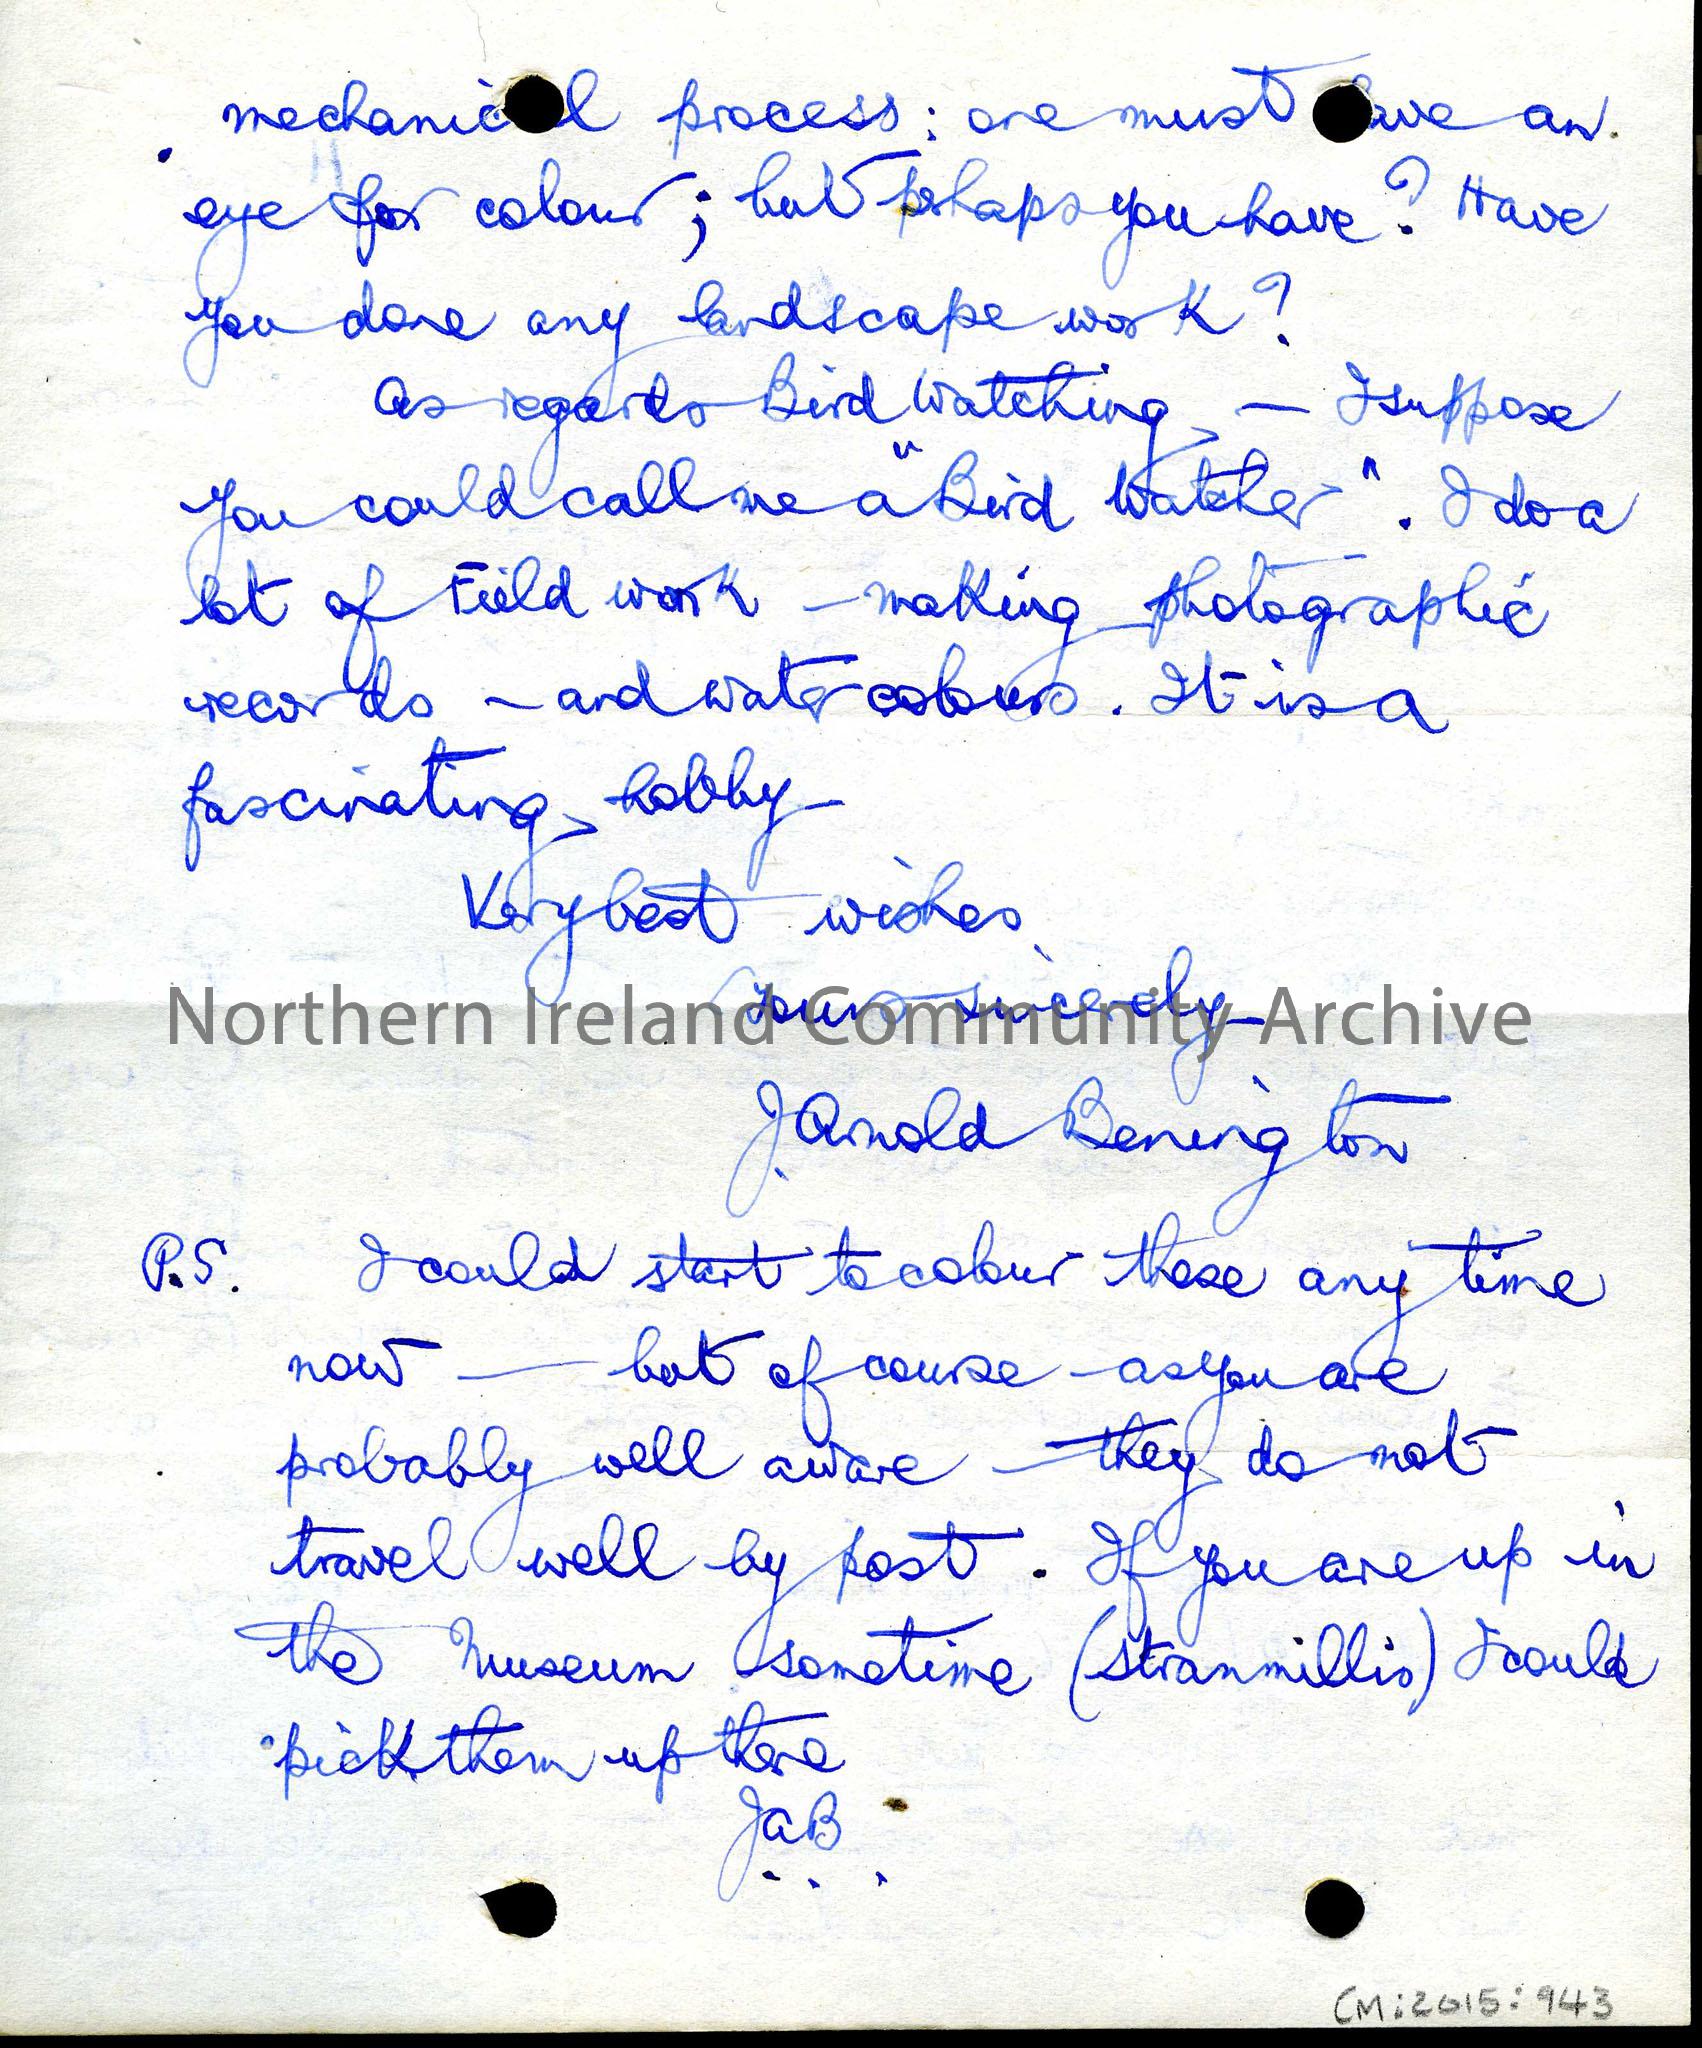 mechanical process: one must have an
eye for colour; but perhaps you have? Have
you done any landscape work?
As regards Bird Watching — I suppose
you could call me a "Bird Watcher". I do a
lot of Field work - making photographic
records - and water colours. It is a
fascinating hobby -
Very best wishes
Yours sincerely -
Northern Ireland Community Archive
J. Arnold Benington
P.S. I could start to colour these any time
now — but of course - as you are
probably well aware - they do not
travel well by post. If you are up in
the Museum sometime (Stranmillis) I could
pick them up there
JAB
CM:2015:943